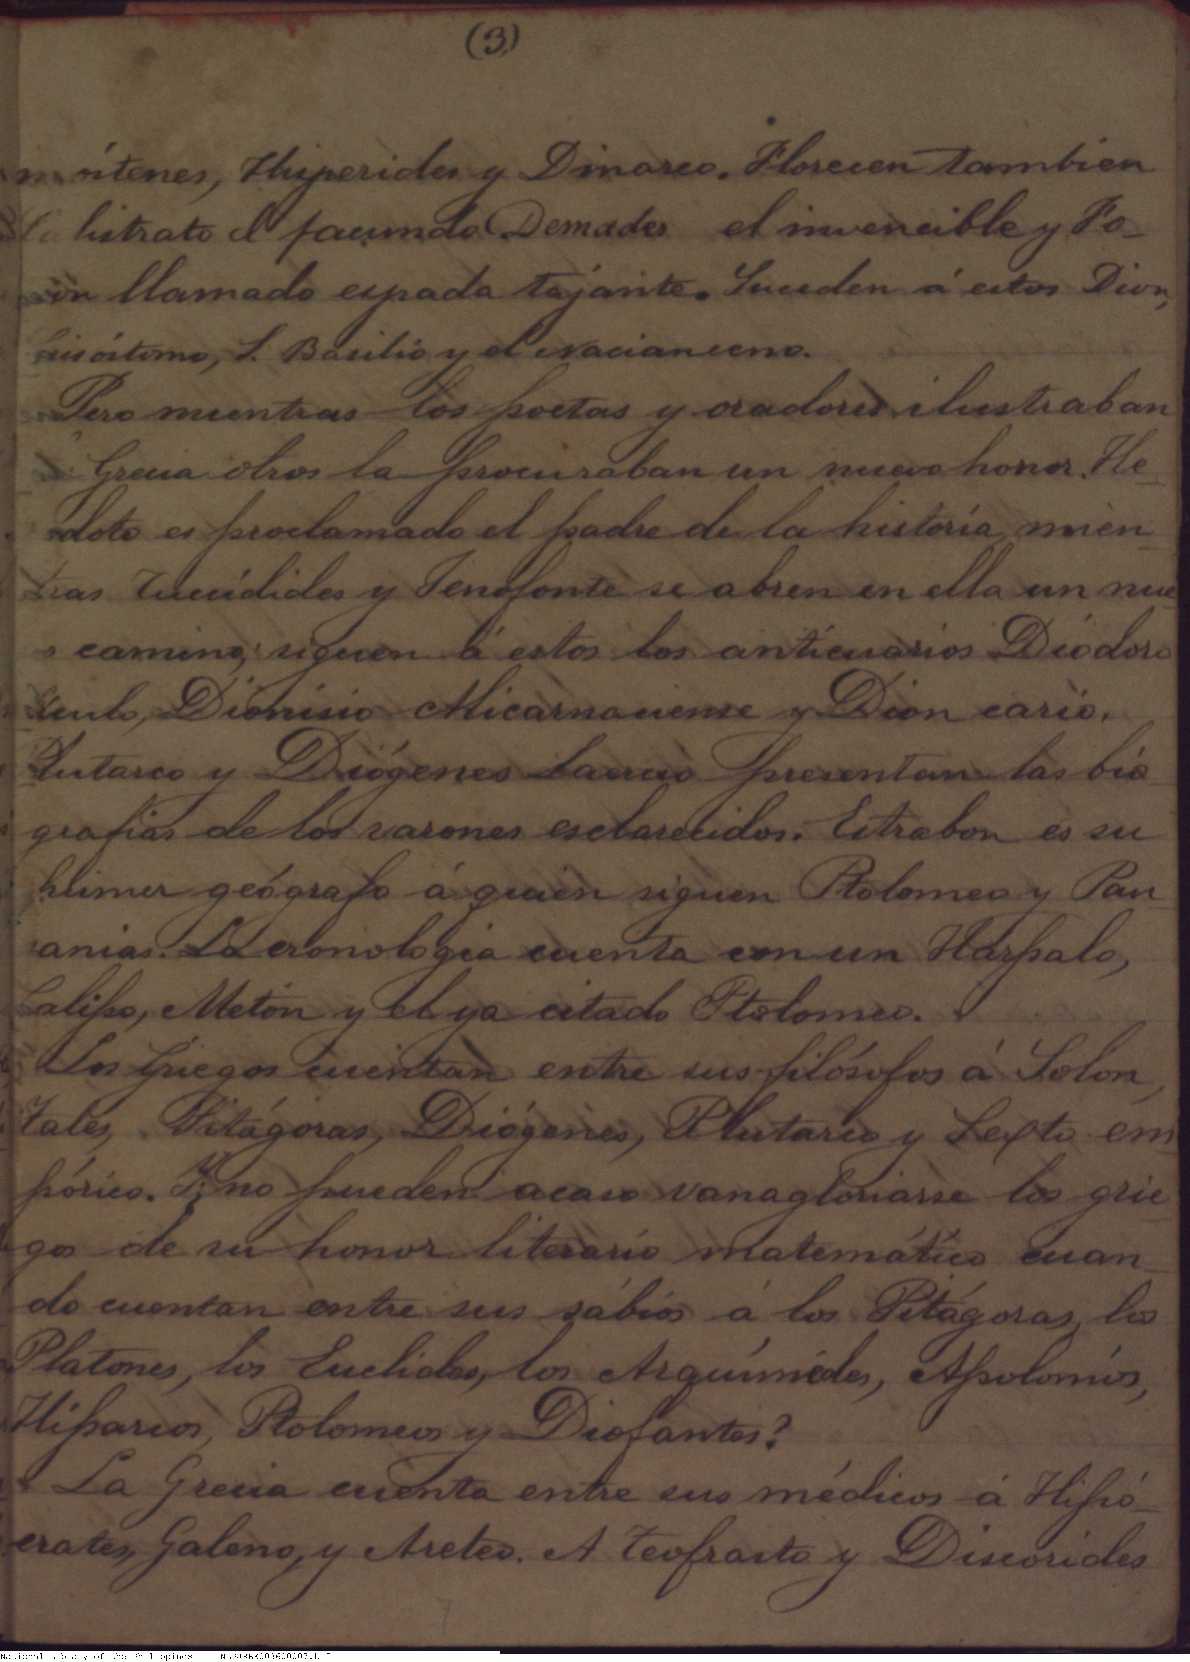 (3)
móstenes, Hiperides y Dinarco. Florecen tambien
listrato el facundo Demades el invencible y Fo-
cion llamado espada tajante. Suceden á estos Dion,
Crisóstomo, S. Basilio y el Nacianceno.
Pero mientras los poetas y oradores ilustraban
Grecia otros la procuraban un nuevo honor. He-
doto es proclamado el padre de la historia, mien-
tras Tucídides y Jenofonte se abren en ella un nue-
o camino; siguen á estos los anticuarios Diódoro
Sículo, Dionisio Alicarnacense y Dion cario.
Plutarco y Diógenes Laercio presentan las bio
grafias de los varones esclarecidos. Estrabon es su
primer geógrafo á quien siguen Ptolomeo y Pau-
sanias. La cronologia cuenta con un Harpalo,
Calipo, Metón y el ya citado Ptolomeo.
Los Griegos cuentan entre sus filósofos á Solón,
Tales, Pitágoras, Diógenes, Plutarco y Sexto em-
pórico. Y ¿no pueden acaso vanagloriarse los grie-
gos de su honor literario matemático cuan-
do cuentan entre sus sábios á los Pitágoras, los
Platones, los Euclides, los Arquímides, Apolonios,
Hiparcos, Ptolomeos y Diofantes?
La Grecia cuenta entre sus médicos á Hipó-
crates, Galeno, y Areteo. A Teofrasto y Discorides
National Library of the Philippines